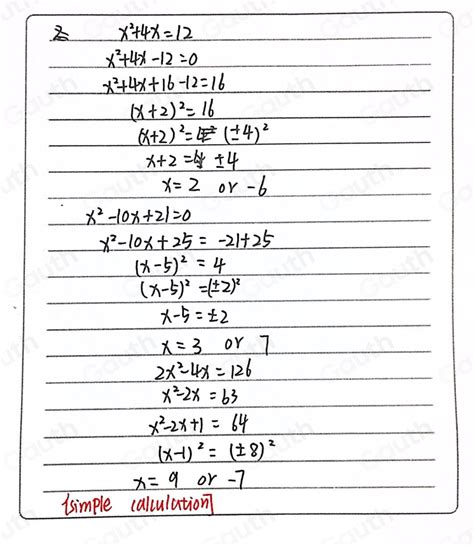 x²+4x=12
x²+4x-12=0
x²+4x+16-12=16
(x+2)²=16
(x+2)²= (±4)²
x+2 = ±4
x= 2 or -6
x²-10x+21=0
x²-10x+25 = -21+25
(x-5)² = 4
(x-5)² =(±2)²
x-5=±2
x=3 or 7
2x²-4x=126
x²-2x=63
x²-2x+1= 64
(x-1)² = (±8)²
x= 9 or -7
[simple calculation]
Gauth